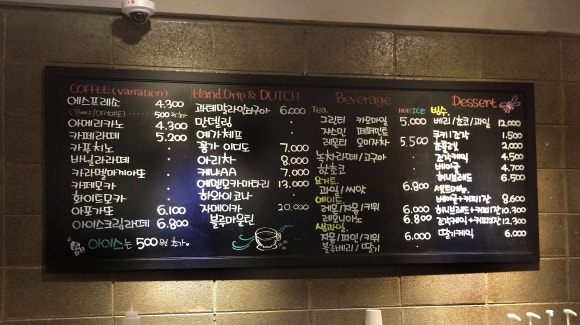 COFFEE (variation)
에스프레소 4.300
아메리카노 4.300
카페라떼 5.200
카푸치노
바닐라라떼
카라멜마끼아또
카페모카
화이트모카
아포가또 6.100
아이스크림라떼 6.800
아이스는 500원 추가
Hand Drip & DUTCH
과테말라안티구아 6.000
만델링
예가체프
몽가 이디도 7.000
아리차 8.000
케냐AA 7.000
예멘모카마타리 13.000
하와이코나
자메이카 20.000
블루마운틴
Beverage
Tea HOT/ICE
그린티 카모마일 5.000
자스민 페퍼민트
레몬티 유자차 5.500
녹차라떼/고구마
핫초코
요거트
과일/씨앗 6.800
에이드
레몬/자몽/키위 6.000
레몬니아노 6.800
생과일
자몽/파인/키위
블루베리/딸기
Dessert
빙수
베리/초코/과일 12.000
쿠키조각 1.500
2.500
조각케익 4.500
베이글 4.700
허니브레드 6.500
세트메뉴
베이글+커피2잔 8.600
허니브레드+커피2잔 10.300
조각케익+커피2잔 12.300
딸기케익 6.000